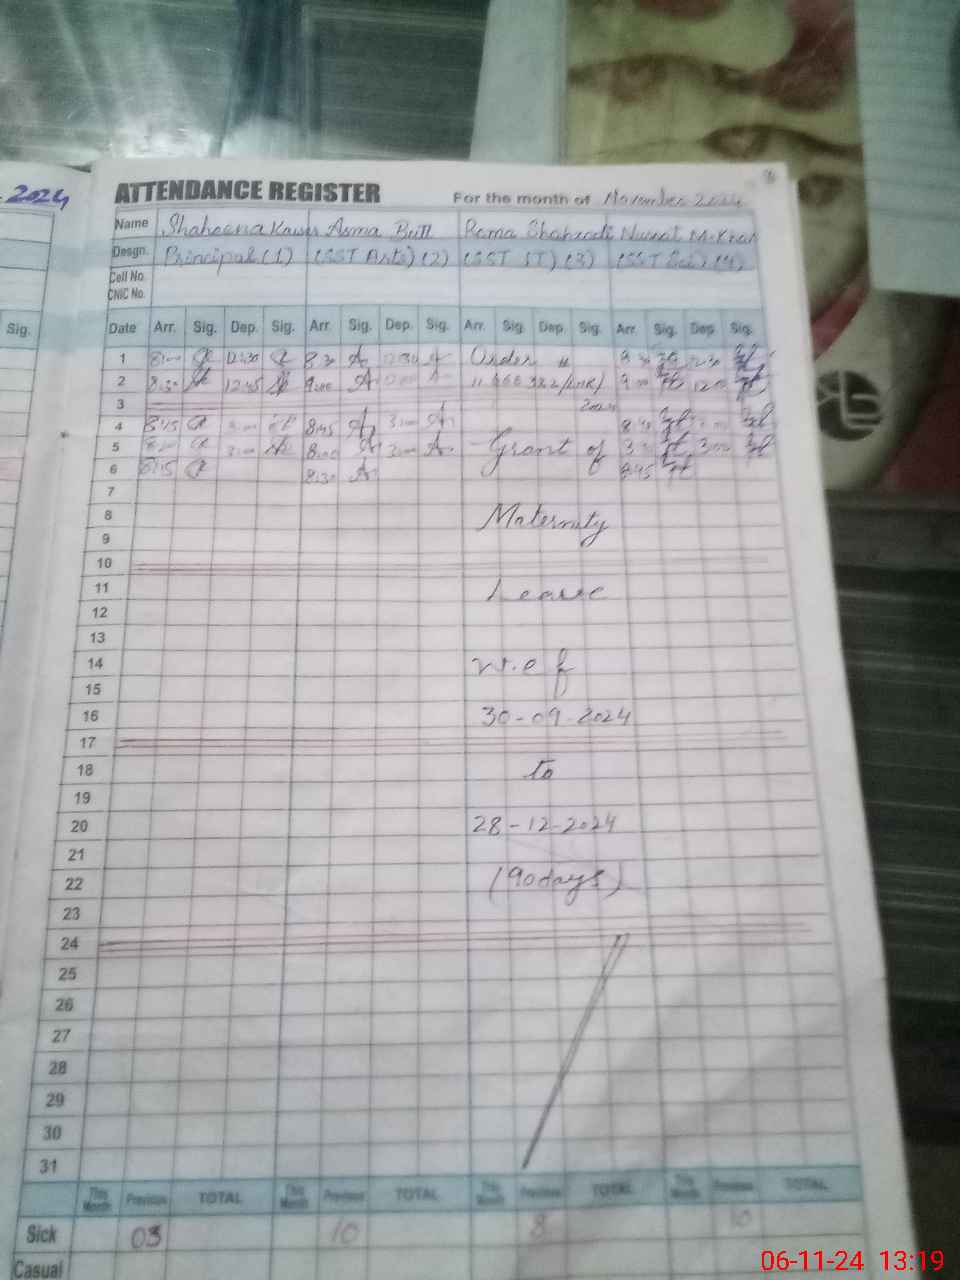 2024
Sig.
ATTENDANCE REGISTER For the month of November 2024
Name Shaheena Kausar Asma Butt Rema Shahzadi Nusrat M. Khan
Desgn. Principal (1) (SST Arts) (2) (SST IT) (3) (SST Sci) (4)
Cell No.
CNIC No.
Date Arr. Sig. Dep. Sig. Arr. Sig. Dep. Sig. Arr. Sig. Dep. Sig. Arr. Sig. Dep. Sig.
1 8:00 12:30 8:30 12:30 Order 8:30 12:30
2 8:30 12:45 9:00 9:00 12:00
3 2024
4 8:45 8:45 3:00 8:40
5 8:00 3:00 8:00 3:00 Grant of 3:00
6 8:15 8:30 8:45
7
8 Maternity
9
10
11 Leave
12
13
14 w.e.f
15
16 30-09-2024
17
18 to
19
20 28-12-2024
21
22 (90 days)
23
24
25
26
27
28
29
30
31
This Month Previous TOTAL This Month Previous TOTAL This Month Previous TOTAL This Month Previous TOTAL
Sick 03 10 8 10
Casual
06-11-24 13:19